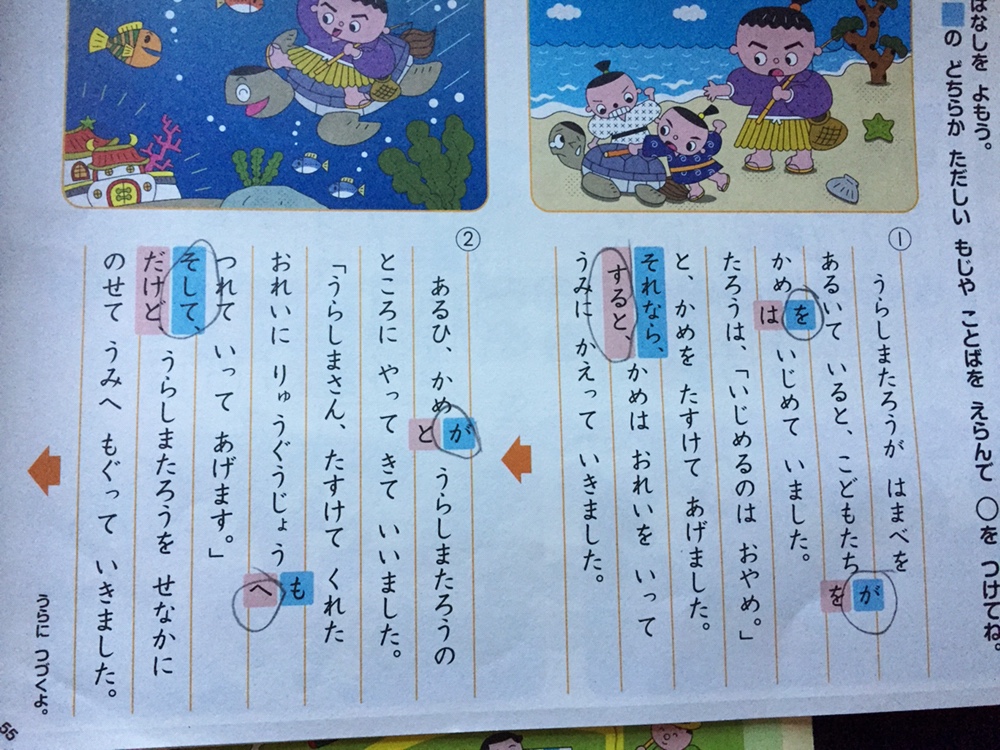 はなしを よもう。
の どちらか ただしい もじや ことばを えらんで ○を つけてね。
①
うらしまたろうが はまべを
あるいて いると、こどもたち が を
かめ を は いじめて いました。
たろうは、「いじめるのは おやめ。」
と、かめを たすけて あげました。
それなら、 すると、 かめは おれいを いって
うみに かえって いきました。
②
あるひ、かめ が と うらしまたろうの
ところに やって きて いいました。
「うらしまさん、たすけて くれた
おれいに りゅうぐうじょう も へ
つれて いって あげます。」
そして、 だけど、 うらしまたろうを せなかに
のせて うみへ もぐって いきました。
うらに つづくよ。
55